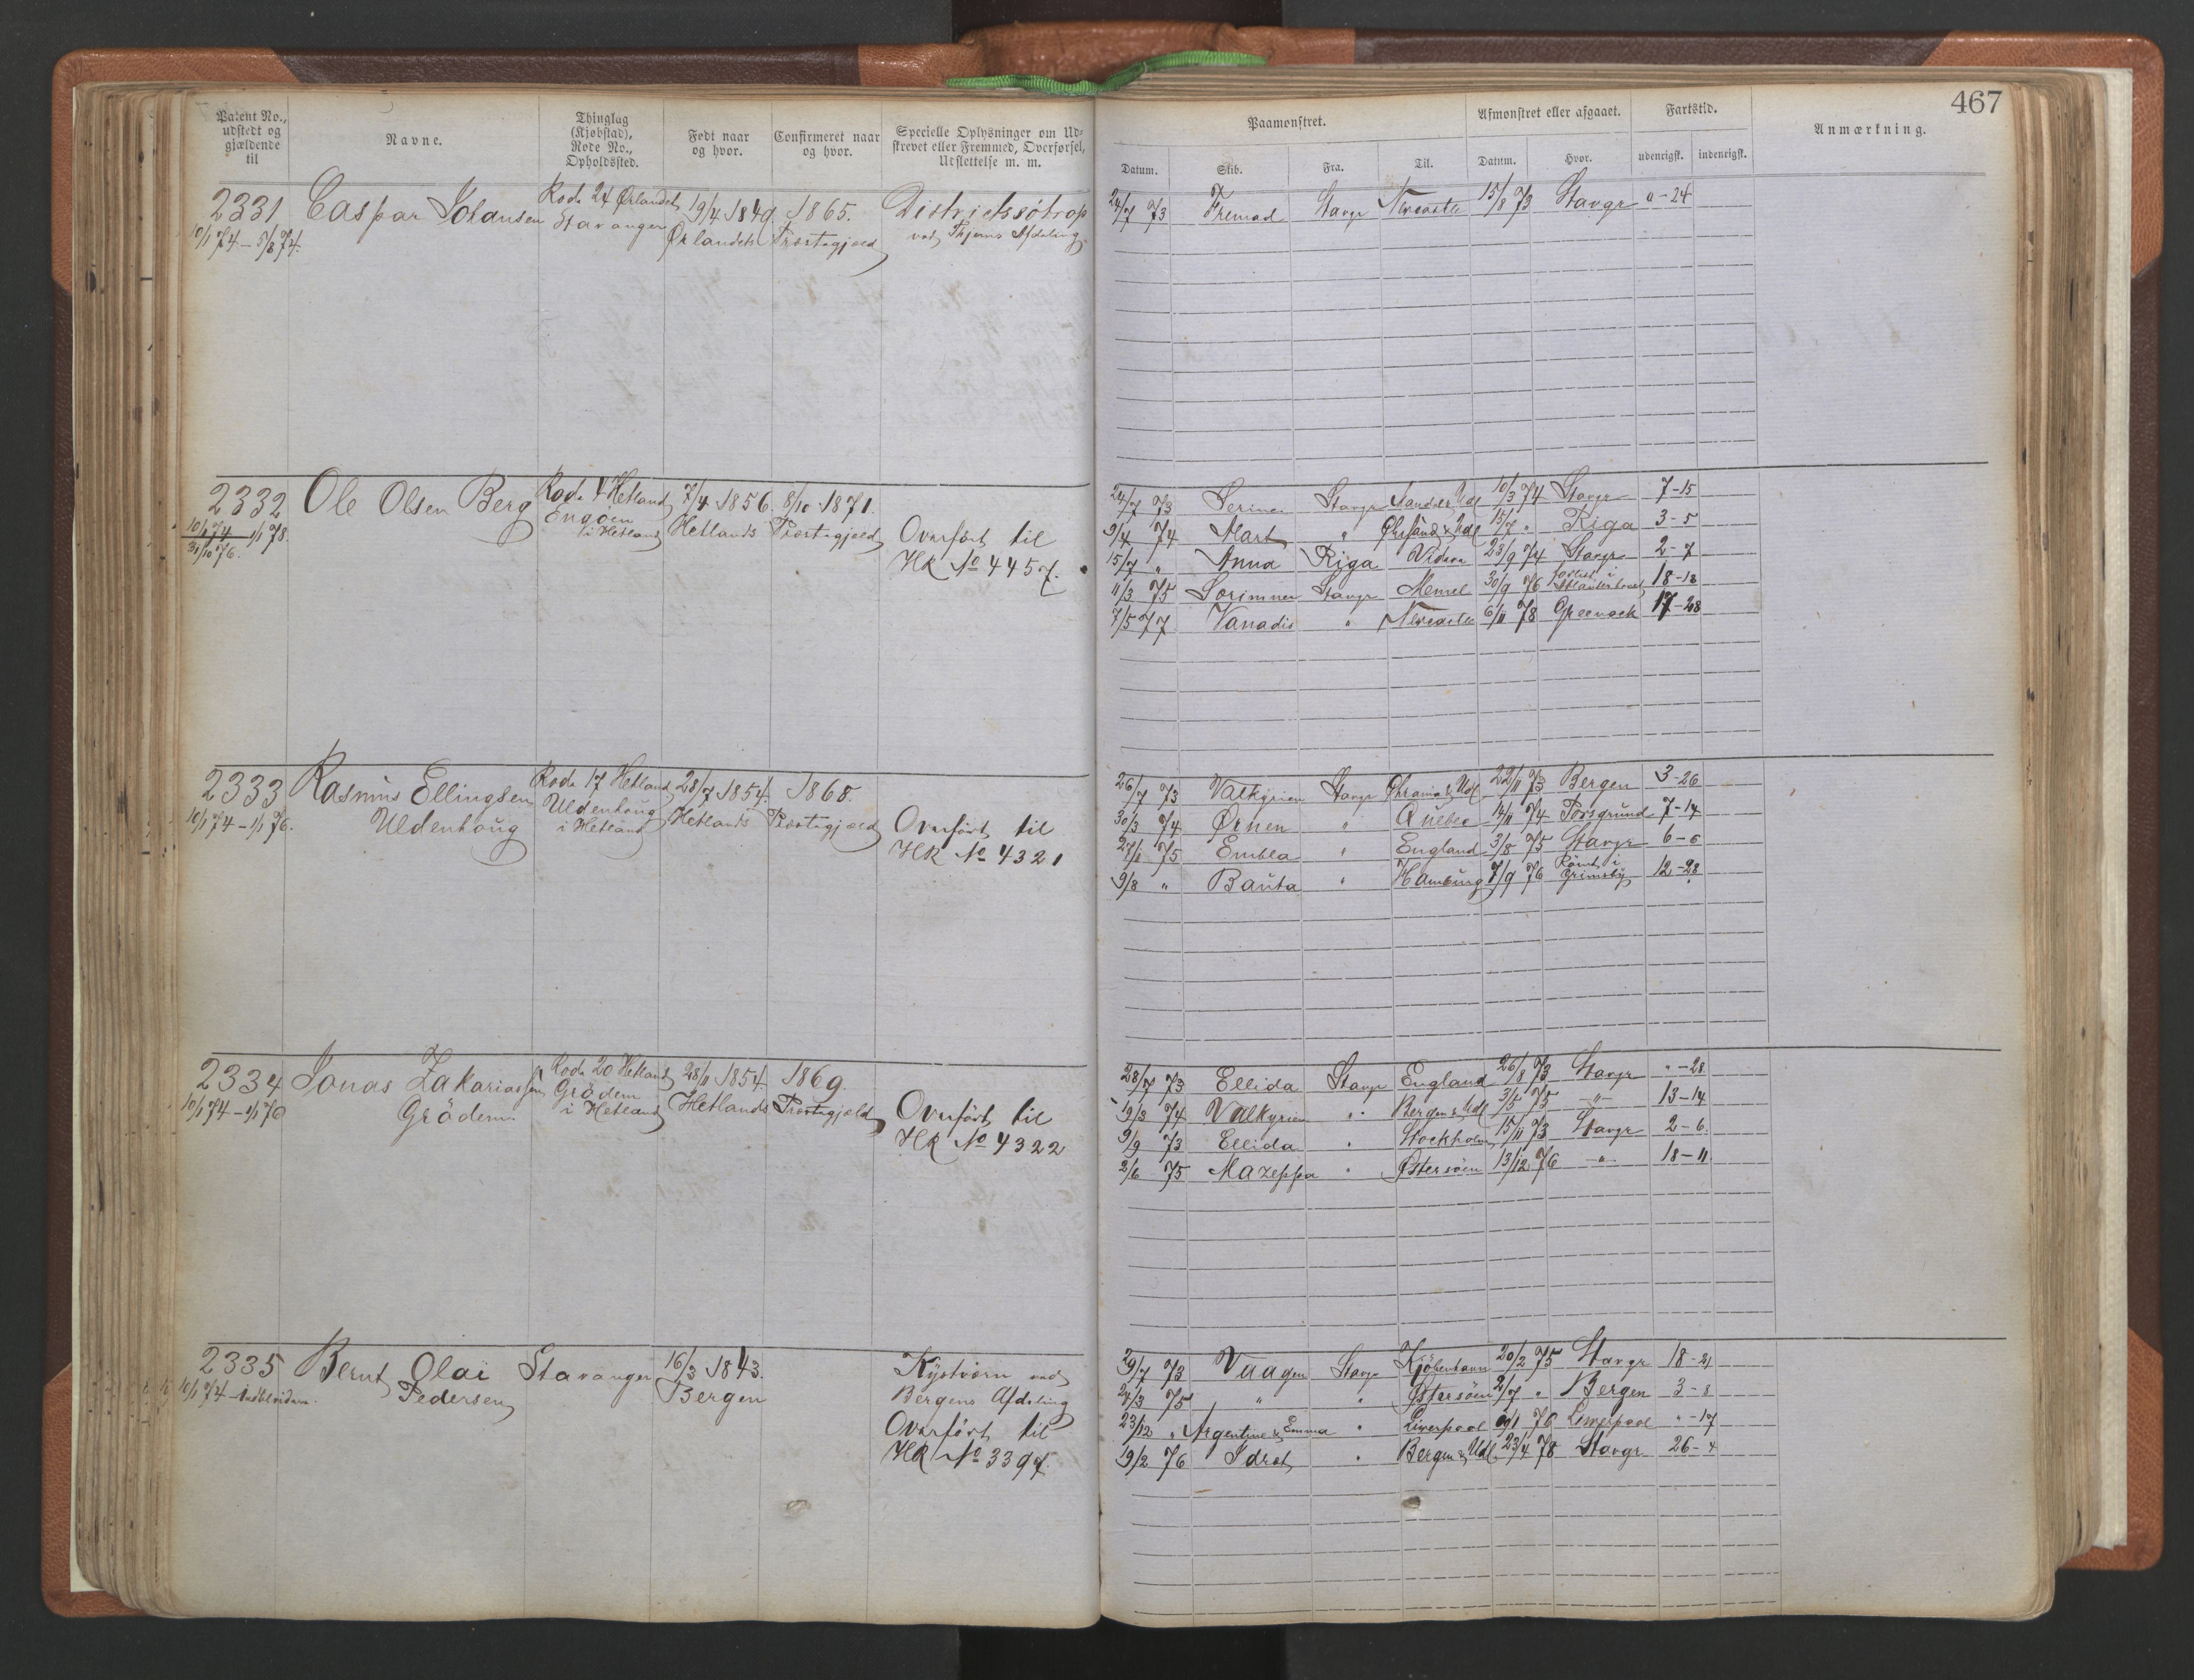 467
Patent No., udstedt og gjældende til
Navne.
Thinglag (Kjøbstad), Rode No., Opholdssted.
Født naar og hvor.
Confirmeret naar og hvor.
Specielle Oplysninger om Udskrevet eller Fremmed, Overførsel, Udslettelse m. m.
Paamønstret.
Afmønstret eller afgaaet.
Fartstid.
Anmærkning.
Datum. Skib. Fra. Til. Datum. Hvor. udenrigsk. indenrigsk.
2331 Caspar Johansen Rode 24 Ørlandet 19/4 1849 1865.
10/1 74 – 5/8 74. Stavanger Ørlandets Præstegjæld
Districtssótrop
ved Thjems Afdeling
24/7 73 Fremad Stavgr Newcastle 15/8 73 Stavgr "-24
2332 Ole Olsen Berg Rode 4 Hetland 7/4 1856. 8/10 1871.
10/1 74 1/1 78. Engøen Hetlands Præstegjæld
31/10 76. i Hetland
Overført til
HR No 4457.
24/7 73 Stavgr & Udl 10/3 74 Stavgr 7-15
9/4 74 Mart " & Udl 15/7 " Riga 3-5
15/7 " Anna Riga 23/9 74 Stavgr 2-7
11/3 75 Sørimner Stavgr Memel 30/9 76 forlist i Atlanterhavet 18-18
7/5 77 Vanadis " Newcastle 6/11 78 Greenock 17-28
2333 Rasmus Ellingsen Rode 17 Hetland 28/7 1854. 1868.
10/1 74 – 1/1 76. Uldenhaug Uldenhaug Hetlands Præstegjæld
i Hetland
Overført til
HR No 4321
26/7 73 Valkyrien Stavgr Chrania & Udl 22/11 73 Bergen 3-26
30/3 74 Ørnen " Quebec 14/11 74 Porsgrund 7-14
27/1 75 Embla " England 3/8 75 Stavgr 6-6
9/8 " Bauta " Hamburg 7/9 76 Rømt i Grimsby 12-28
2334 Jonas Zakariassen Rode 20 Hetland 28/11 1854. 1869.
10/1 74 – 1/1 76 Grødem Grødem Hetlands Præstegjæld
i Hetland
Overført til
HR No 4322
28/7 73 Ellida Stavgr England 26/8 73 Stavgr "-28
19/3 74 Valkyrien " Bergen & Udl 3/5 75 " 13-14
9/9 73 Ellida " Stockholm 15/11 73 Stavgr 2-6.
2/6 75 Mazeppa " Østersøen 13/12 76 " 18-11
2335 Bernt Olai Stavanger 16/3 1843.
10/1 74 – Pedersen Bergen
Kystværn ved
Bergens Afdeling
Overført til
HR No 3397.
29/7 73 Vaagen Stavgr Kjøbenhavn 20/2 75 Stavgr 18-21
24/3 75 " " Østersøen 2/7 " Bergen 3-8
23/12 " Argentine & Emma " Liverpool 76 Liverpool "-17
19/2 76 Idræt " Bergen & Udl. 23/4 78 Stavgr 26-4